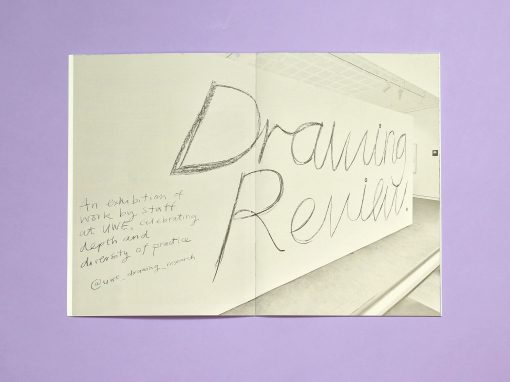 Drawing
Review.
An exhibition of
work by staff
at UWE, celebrating
depth and
diversity of practice
@uwe_drawing_research